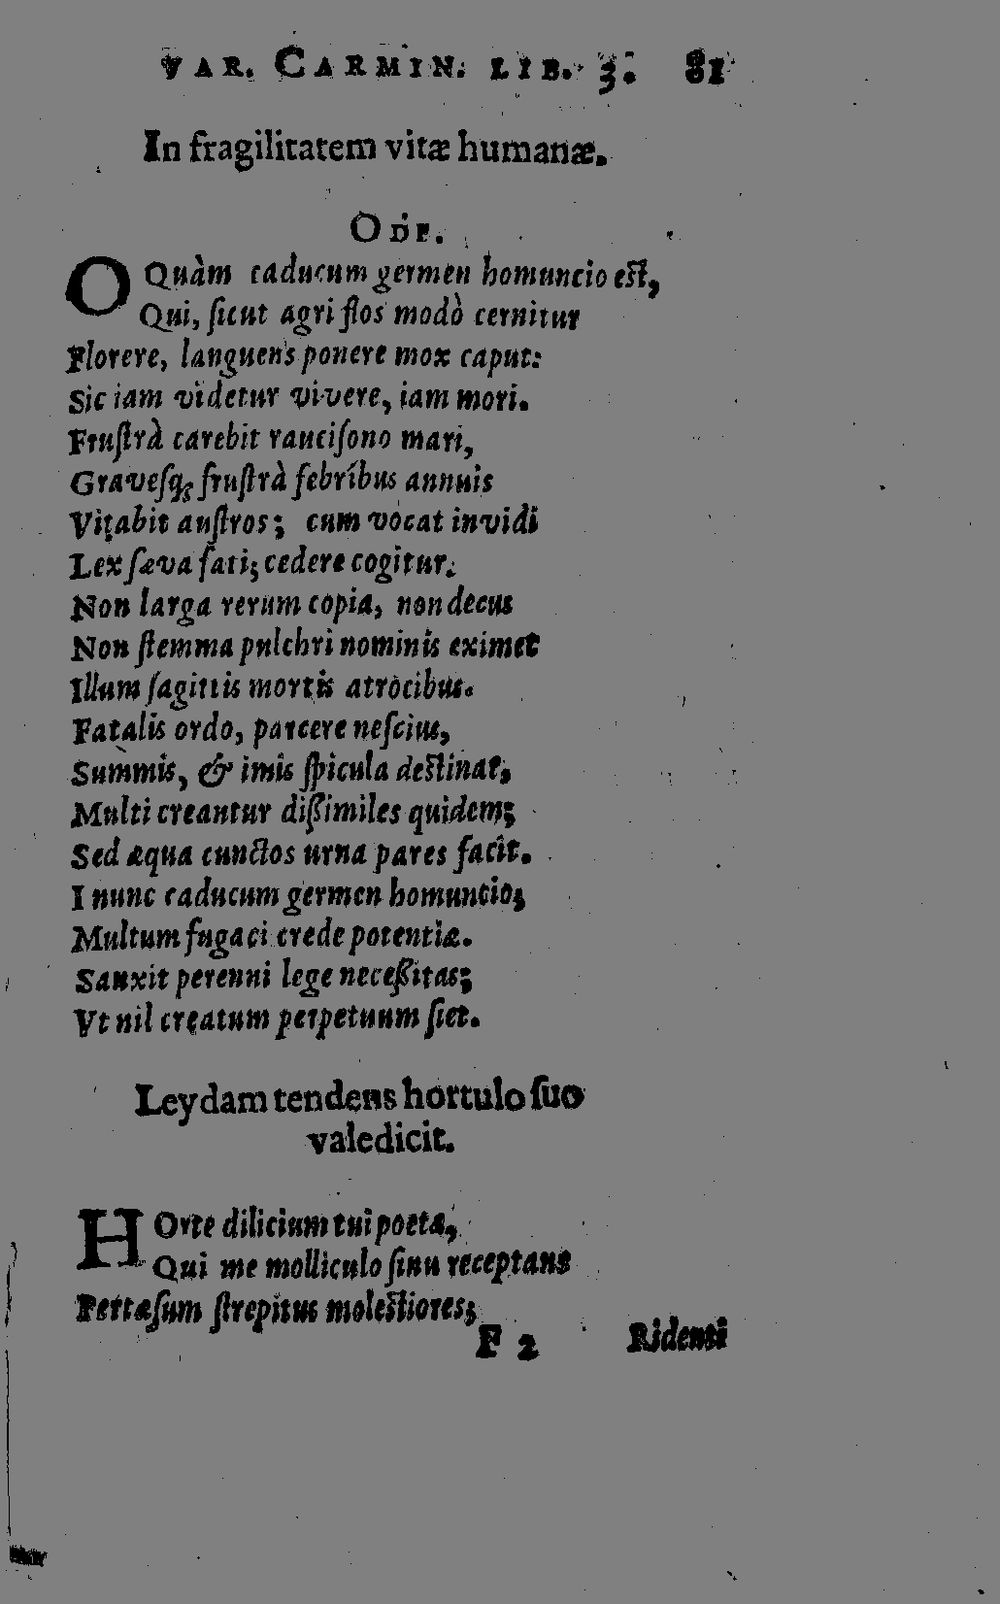 VAR. CARMIN. LIB. 3. 81
In fragilitatem vitæ humanæ.
ODE.
O Quàm caducum germen homuncio est,
Qui, ſicut agri flos modò cernitur
Florere, languens ponere mox caput:
Sic iam videtur vivere, iam mori.
Fruſtrà carebit rauciſono mari,
Graveſq; fruſtrà febribus annuis
Vitabit auſtros; cum vocat invidi
Lex ſæva fati; cedere cogitur.
Non larga rerum copia, non decus
Non ſtemma pulchri nominis eximet
Illum ſagittis mortis atrocibus.
Fatalis ordo, parcere neſcius,
Summis, & imis ſpicula destinat,
Multi creantur dißimiles quidem;
Sed æqua cunctos urna pares facit.
I nunc caducum germen homuncio;
Multum fugaci crede potentiæ.
Sanxit perenni lege neceßitas;
Vt nil creatum perpetuum ſiet.
Leydam tendens hortulo ſuo
valedicit.
HOrte dilicium tui poetæ,
Qui me molliculo ſinu receptans
Pertæſum ſtrepitus molestiores;
F 2 Ridenti